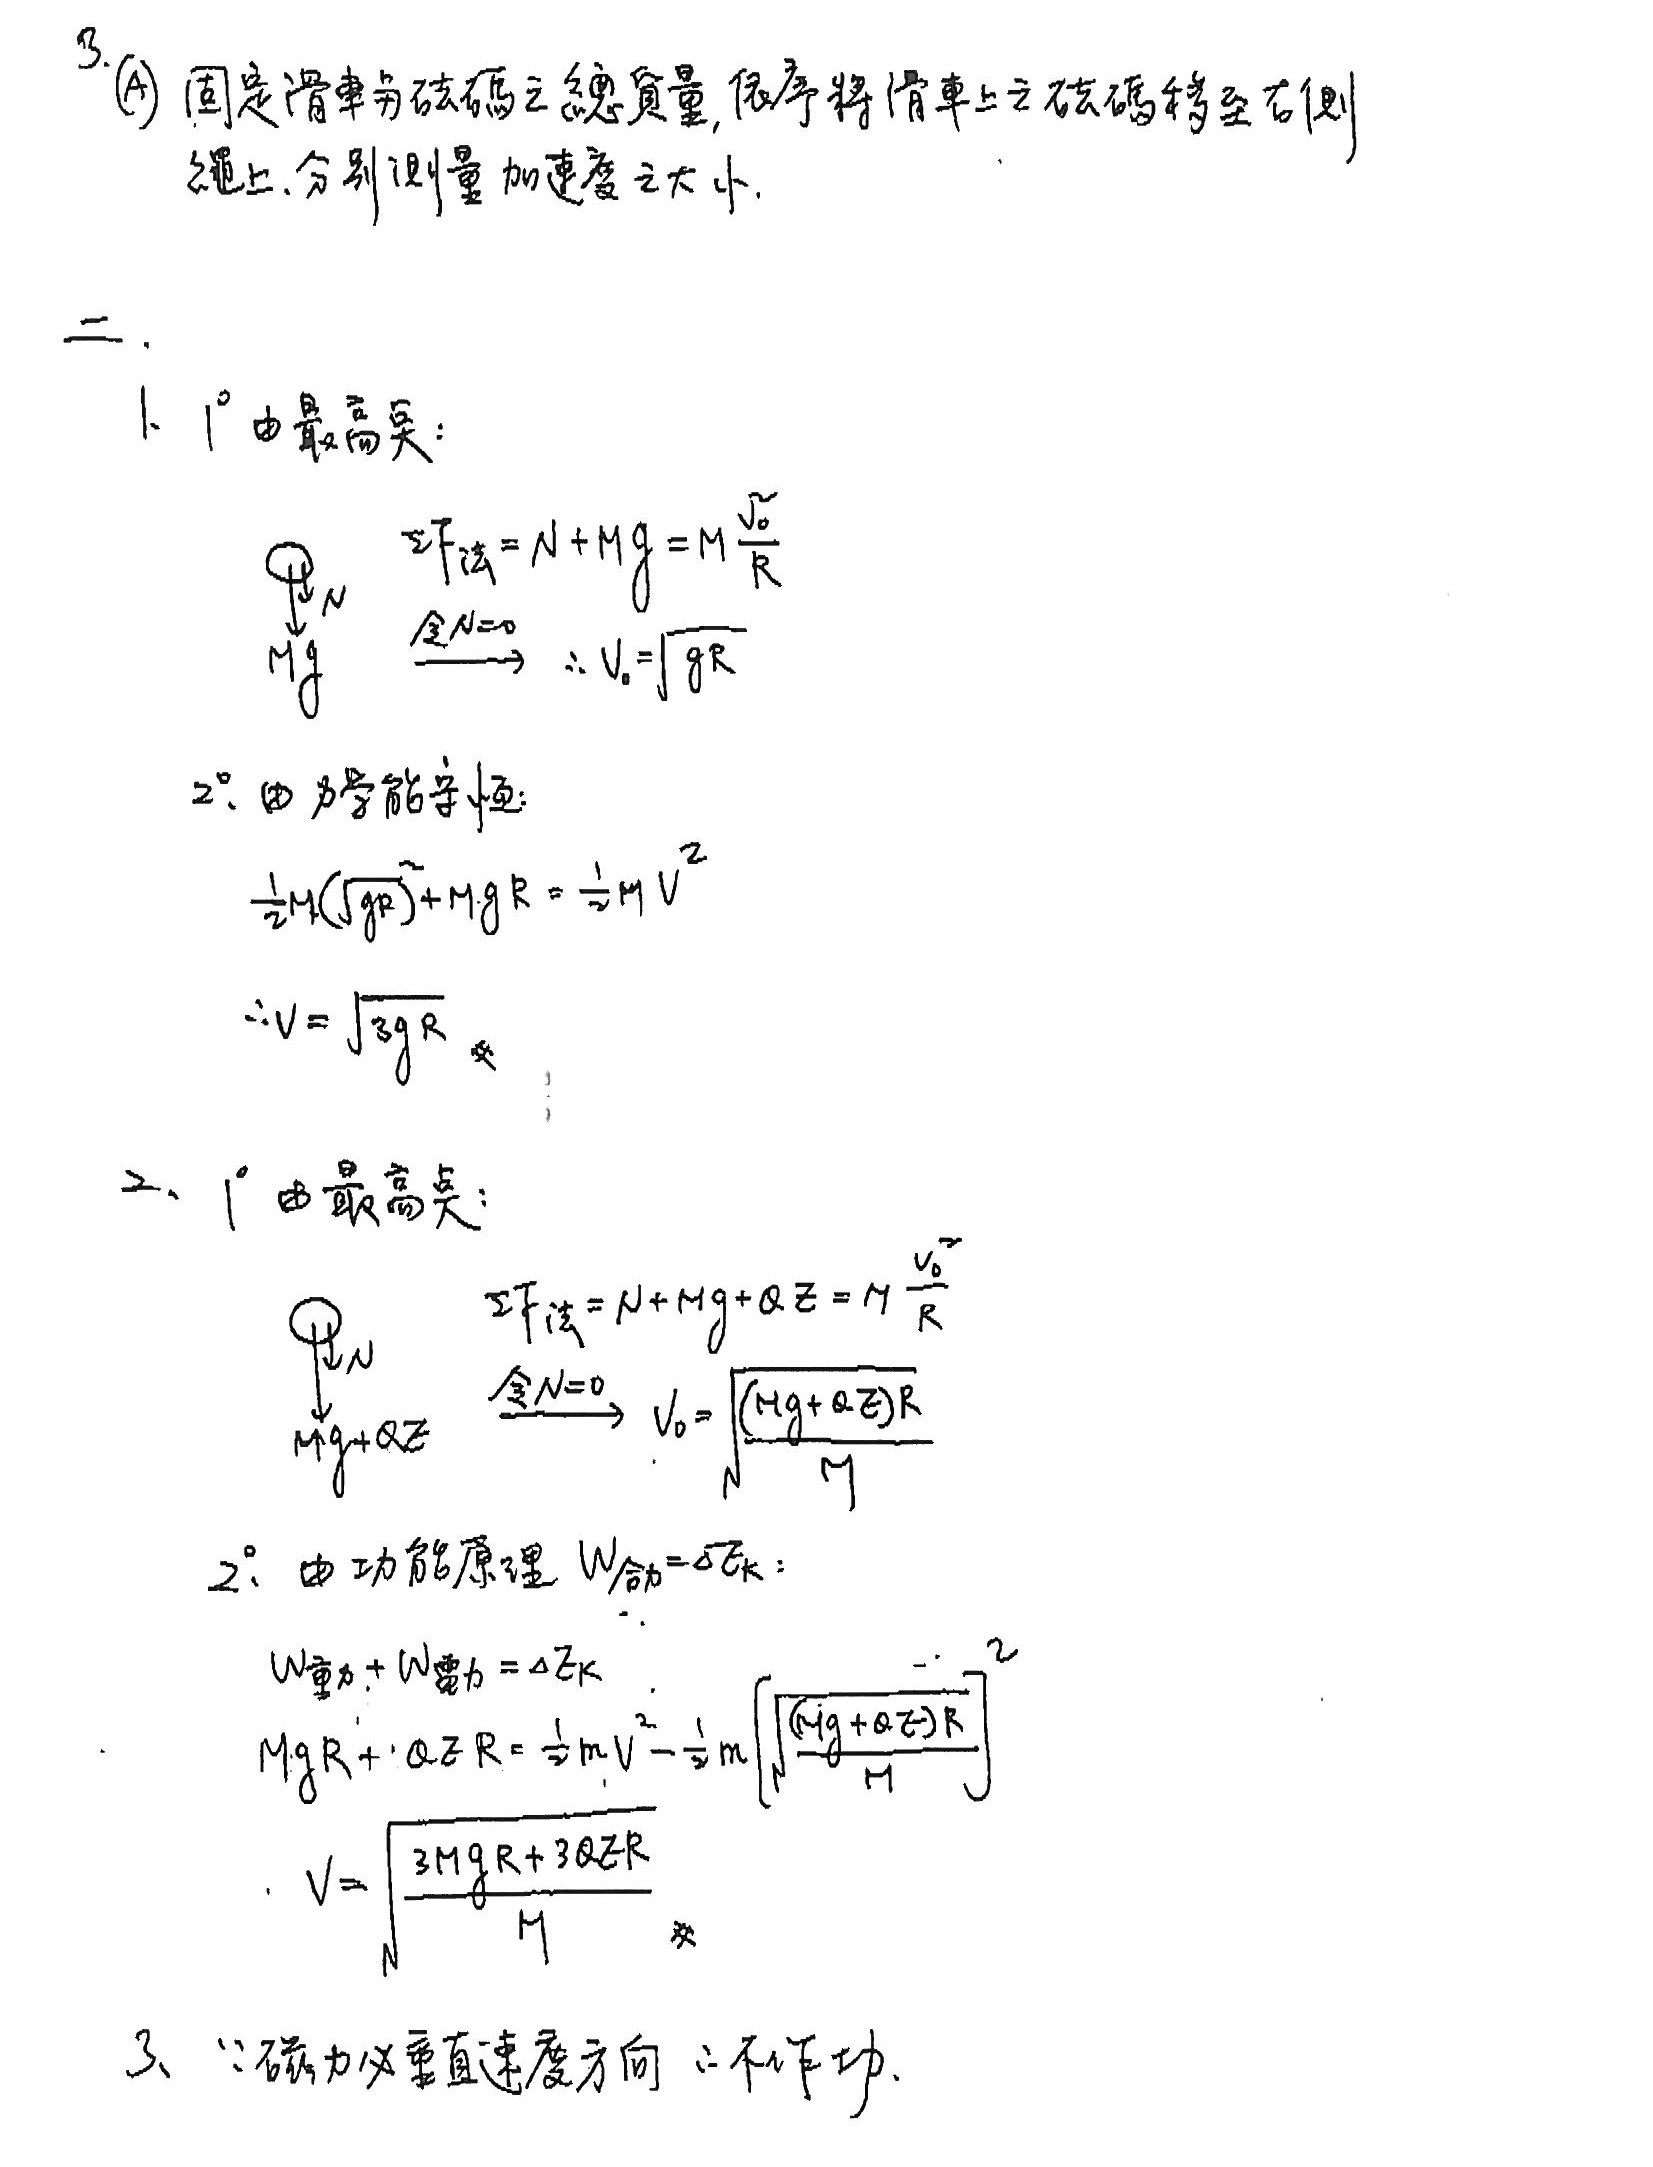 3.
(A) 固定滑車與砝碼之總質量,依序將滑車上之砝碼移至右側
繩上、分別測量加速度之大小.
二.
1. 1° 由最高點:
ΣF法 = N + Mg = M V₀²/R
N
Mg
令N=0 → ∴ V₀ = √(gR)
2°. 由力學能守恆:
½M(√gR)² + MgR = ½MV²
∴ V = √(3gR) ※
2、 1° 由最高點:
ΣF法 = N + Mg + QE = M V₀²/R
N
Mg+QE
令N=0 → V₀ = √((Mg+QE)R/M)
2°. 由功能原理 W合力 = ΔEK:
W重力 + W電力 = ΔEK
MgR + QER = ½mV² − ½m[√((Mg+QE)R/M)]²
V = √((3MgR+3QER)/M) ※
3、 ∵磁力必垂直速度方向 ∴不作功.